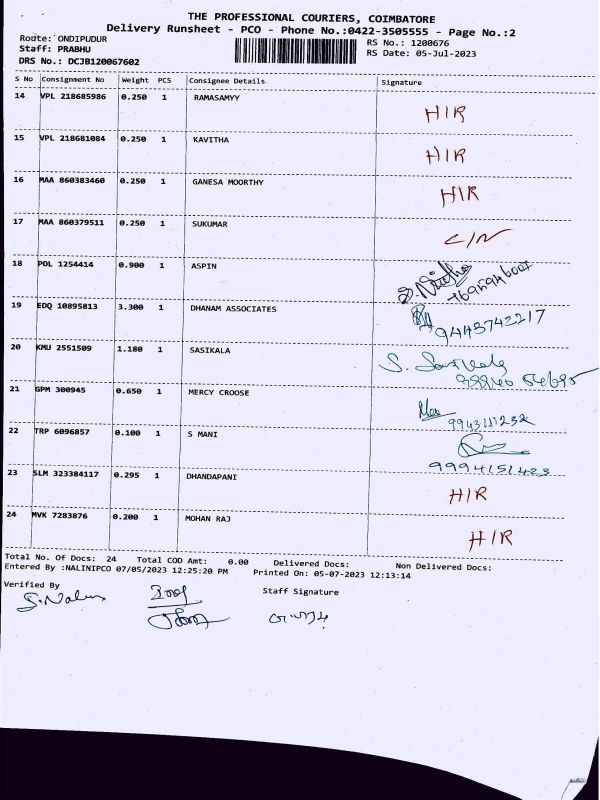 THE PROFESSIONAL COURIERS, COIMBATORE
Delivery Runsheet - PCO - Phone No.:0422-3505555 - Page No.:2
Route: ONDIPUDUR RS No.: 1200676
Staff: PRABHU RS Date: 05-Jul-2023
DRS No.: DCJB120067602
S No Consignment No Weight PCS Consignee Details Signature
14 VPL 218685986 0.250 1 RAMASAMYY H/R
15 VPL 218681084 0.250 1 KAVITHA H/R
16 MAA 860383460 0.250 1 GANESA MOORTHY H/R
17 MAA 860379511 0.250 1 SUKUMAR C/N
18 POL 1254414 0.900 1 ASPIN
19 EDQ 10895813 3.300 1 DHANAM ASSOCIATES 9443742217
20 KMU 2551509 1.180 1 SASIKALA
21 GPM 300945 0.650 1 MERCY CROOSE 9943111232
22 TRP 6096857 0.100 1 S MANI 9994151423
23 SLM 323384117 0.295 1 DHANDAPANI H/R
24 MVK 7283876 0.200 1 MOHAN RAJ H/R
Total No. Of Docs: 24 Total COD Amt: 0.00 Delivered Docs: Non Delivered Docs:
Entered By :NALINIPCO 07/05/2023 12:25:20 PM Printed On: 05-07-2023 12:13:14
Verified By Staff Signature